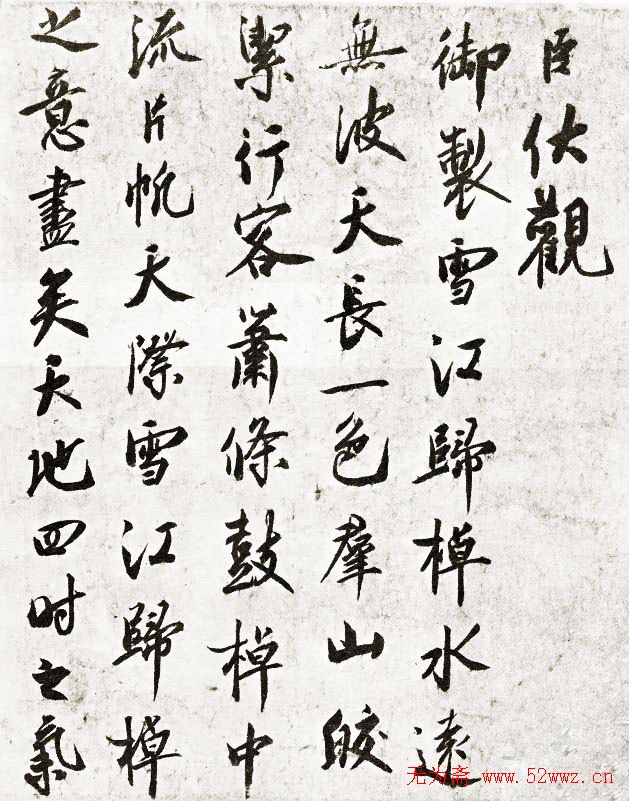 臣伏觀
御製雪江歸棹水遠
無波天長一色羣山皎
潔行客蕭條鼓棹中
流片帆天際雪江歸棹
之意盡矣天地四时之氣
无为斋 www.52wwz.cn